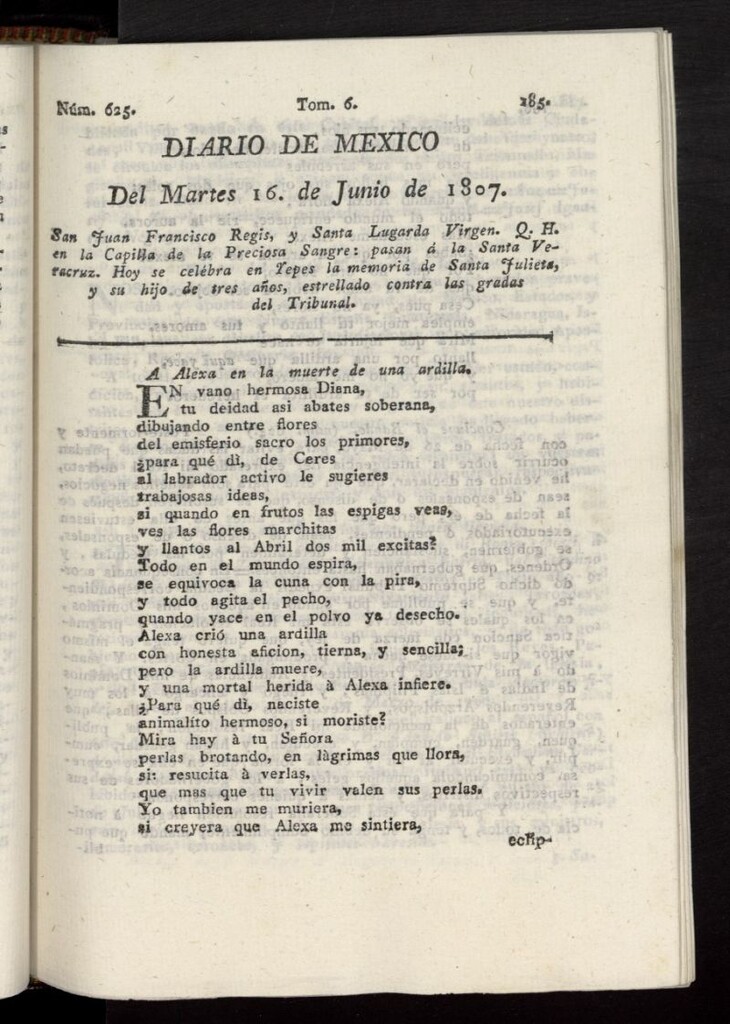 Núm. 625. Tom. 6. 185.
DIARIO DE MEXICO
Del Martes 16. de Junio de 1807.
San Juan Francisco Regis, y Santa Lugarda Virgen. Q. H.
en la Capilla de la Preciosa Sangre: pasan á la Santa Ve-
racruz. Hoy se celébra en Yepes la memoria de Santa Julieta,
y su hijo de tres años, estrellado contra las gradas
del Tribunal.
A Alexa en la muerte de una ardilla.
EN vano hermosa Diana,
tu deidad asi abates soberana,
dibujando entre flores
del emisferio sacro los primores,
¿para qué dì, de Ceres
al labrador activo le sugieres
trabajosas ideas,
si quando en frutos las espigas veas,
ves las flores marchitas
y llantos al Abril dos mil excitas?
Todo en el mundo espira,
se equivoca la cuna con la pira,
y todo agita el pecho,
quando yace en el polvo ya desecho.
Alexa crió una ardilla
con honesta aficion, tierna, y sencilla;
pero la ardilla muere,
y una mortal herida à Alexa infiere.
¿Para qué dì, naciste
animalito hermoso, si moriste?
Mira hay à tu Señora
perlas brotando, en làgrimas que llora,
si: resucita à verlas,
que mas que tu vivir valen sus perlas.
Yo tambien me muriera,
si creyera que Alexa me sintiera,
eclip-